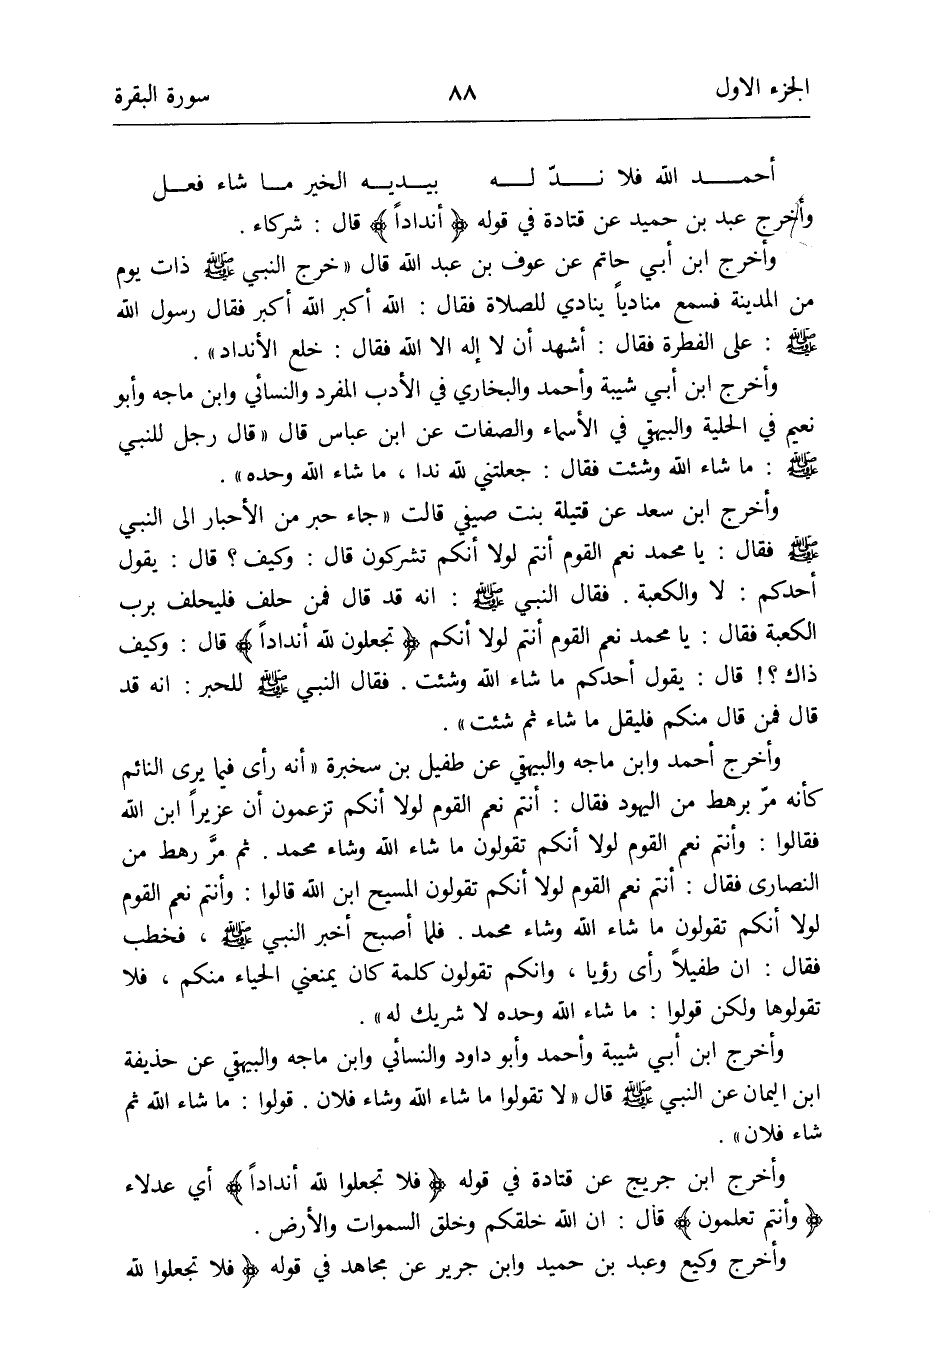 الجزء الاول ٨٨ سورة البقرة
أحمـــد الله فلا نـــدّ لـــه بيـديـه الخير مـا شاء فعـل
وأخرج عبد بن حميد عن قتادة في قوله ﴿ أنداداً ﴾ قال : شركاء .
وأخرج ابن أبي حاتم عن عوف بن عبد الله قال « خرج النبي ﷺ ذات يوم
من المدينة فسمع منادياً ينادي للصلاة فقال : الله أكبر الله أكبر فقال رسول الله
ﷺ : على الفطرة فقال : أشهد أن لا إله الا الله فقال : خلع الأنداد » .
وأخرج ابن أبي شيبة وأحمد والبخاري في الأدب المفرد والنسائي وابن ماجه وأبو
نعيم في الحلية والبيهقي في الأسماء والصفات عن ابن عباس قال « قال رجل للنبي
ﷺ : ما شاء الله وشئت فقال : جعلتني لله ندا ، ما شاء الله وحده » .
وأخرج ابن سعد عن قتيلة بنت صيفي قالت « جاء حبر من الأحبار الى النبي
ﷺ فقال : يا محمد نعم القوم أنتم لولا أنكم تشركون قال : وكيف ؟ قال : يقول
أحدكم : لا والكعبة . فقال النبي ﷺ : انه قد قال فمن حلف فليحلف برب
الكعبة فقال : يا محمد نعم القوم أنتم لولا أنكم ﴿ تجعلون لله أنداداً ﴾ قال : وكيف
ذاك ؟! قال : يقول أحدكم ما شاء الله وشئت . فقال النبي ﷺ للحبر : انه قد
قال فمن قال منكم فليقل ما شاء ثم شئت » .
وأخرج أحمد وابن ماجه والبيهقي عن طفيل بن سخبرة « أنه رأى فيما يرى النائم
كأنه مرّ برهط من اليهود فقال : أنتم نعم القوم لولا أنكم تزعمون أن عزيراً ابن الله
فقالوا : وأنتم نعم القوم لولا أنكم تقولون ما شاء الله وشاء محمد . ثم مرَّ رهط من
النصارى فقال : أنتم نعم القوم لولا أنكم تقولون المسيح ابن الله قالوا : وأنتم نعم القوم
لولا أنكم تقولون ما شاء الله وشاء محمد . فلما أصبح أخبر النبي ﷺ ، فخطب
فقال : ان طفيلاً رأى رؤيا ، وانكم تقولون كلمة كان يمنعني الحياء منكم ، فلا
تقولوها ولكن قولوا : ما شاء الله وحده لا شريك له » .
وأخرج ابن أبي شيبة وأحمد وأبو داود والنسائي وابن ماجه والبيهقي عن حذيفة
ابن اليمان عن النبي ﷺ قال « لا تقولوا ما شاء الله وشاء فلان . قولوا : ما شاء الله ثم
شاء فلان » .
وأخرج ابن جريج عن قتادة في قوله ﴿ فلا تجعلوا لله أنداداً ﴾ أي عدلاء
﴿ وأنتم تعلمون ﴾ قال : ان الله خلقكم وخلق السموات والأرض .
وأخرج وكيع وعبد بن حميد وابن جرير عن مجاهد في قوله ﴿ فلا تجعلوا لله